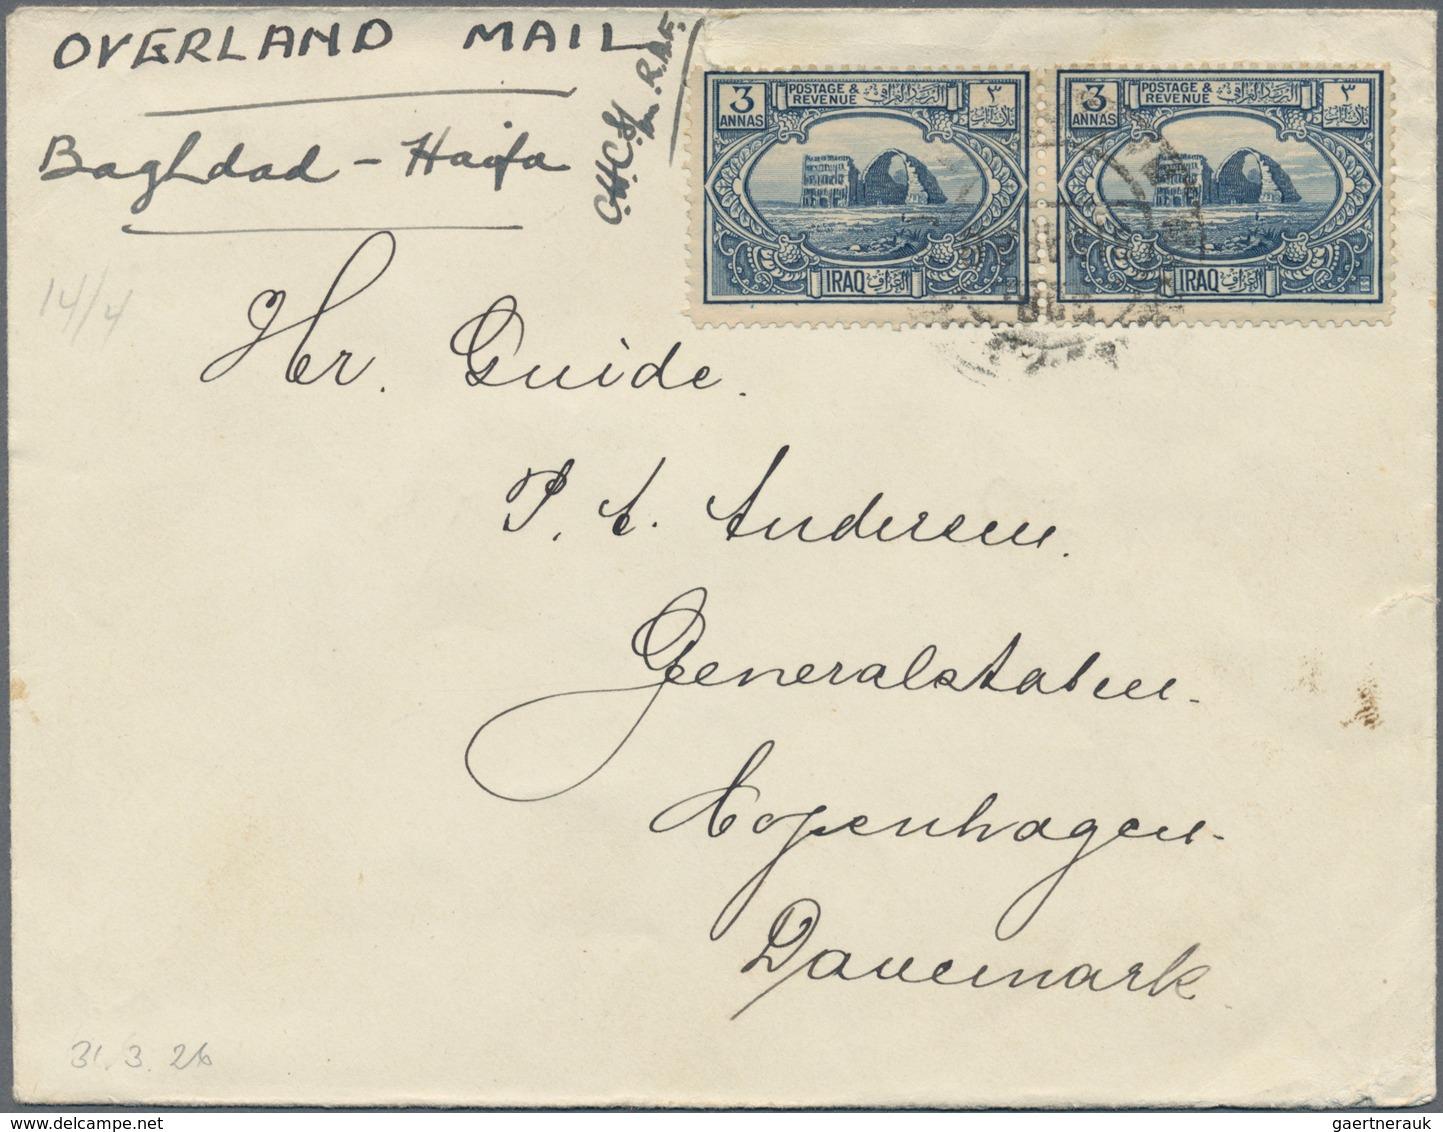 OVERLAND MAIL
Baghdad - Haifa
R.A.F.
3 ANNAS
POSTAGE &
REVENUE
٣
IRAQ
العراق
3 ANNAS
POSTAGE &
REVENUE
٣
IRAQ
العراق
14/4
Hr. Guide.
P. A. Andersen.
Generalstaben.
Kopenhagen.
Danemark
31.3.26
gaertnerauk